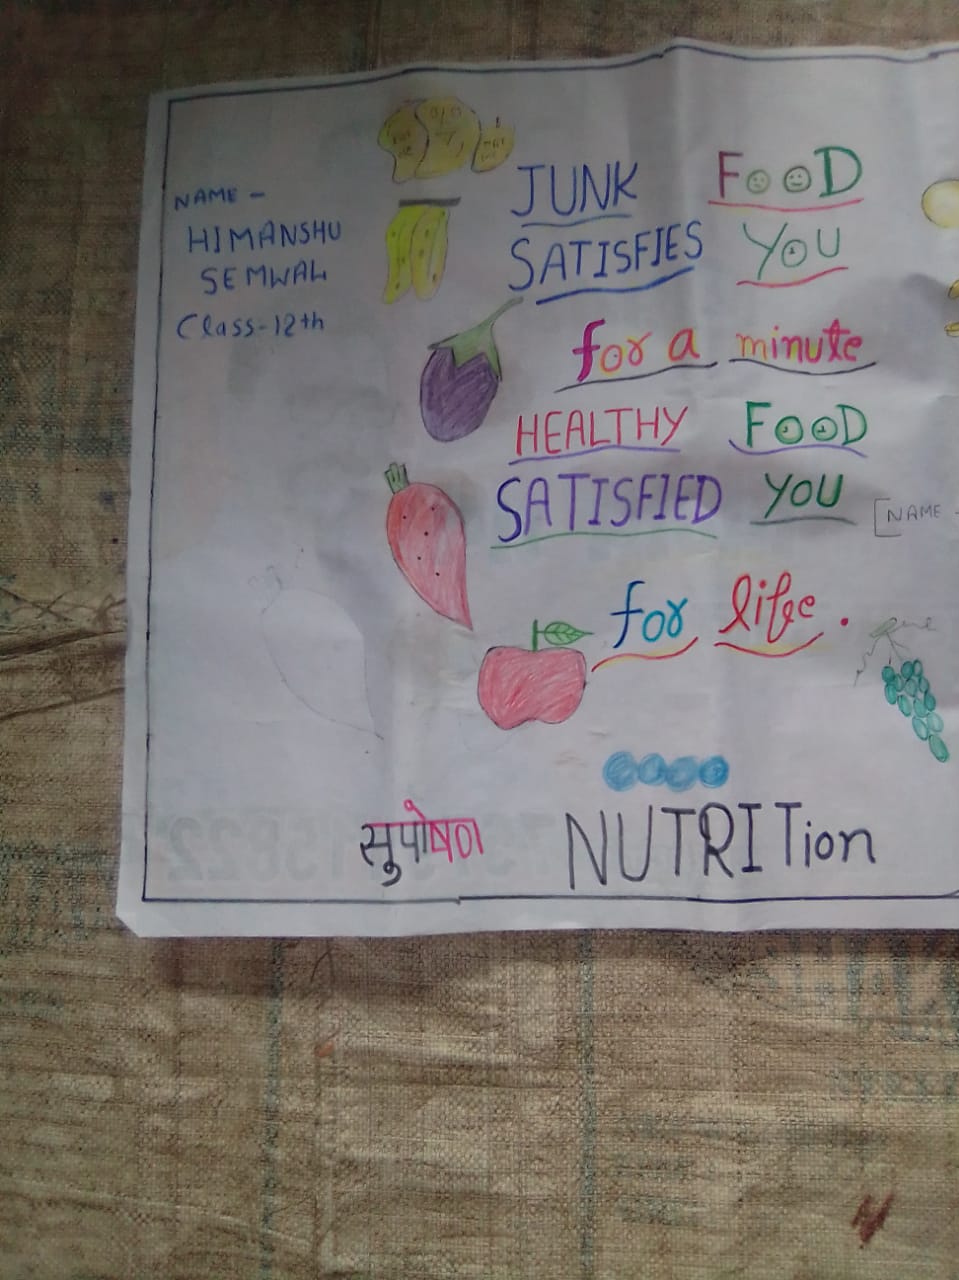 NAME -
HIMANSHU
SEMWAL
Class-12th
JUNK FOOD
SATISFIES YOU
for a minute
HEALTHY FOOD
SATISFIED YOU
for life.
[NAME -
सुपोषण NUTRITion